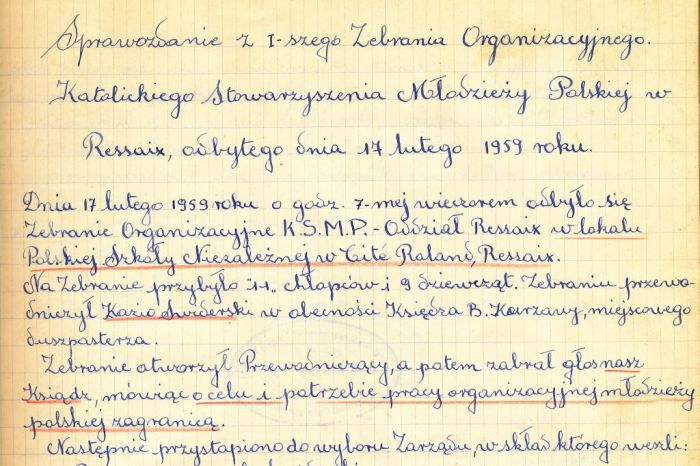 Sprawozdanie z I-szego Zebrania Organizacyjnego.
Katolickiego Stowarzyszenia Młodzieży Polskiej w
Ressaix, odbytego dnia 17 lutego 1959 roku.
Dnia 17 lutego 1959 roku o godz. 7-mej wieczorem odbyło się
Zebranie Organizacyjne K.S.M.P. - Oddział Ressaix w lokalu
Polskiej Szkoły Niezależnej w Cité Roland, Ressaix.
Na Zebranie przybyło "11" chłapców i 9 dziewcząt. Zebraniu przewo-
dniczył Kazio Świderski w obecności Księdza B. Kurzawy, miejscowego
duszpasterza.
Zebranie otworzył Przewodniczący, a potem zabrał głos nasz
Ksiądz, mówiąc o celu i potrzebie pracy organizacyjnej młodzieży
polskiej zagranicą.
Następnie przystąpiono do wyboru Zarządu, w skład którego weszli: